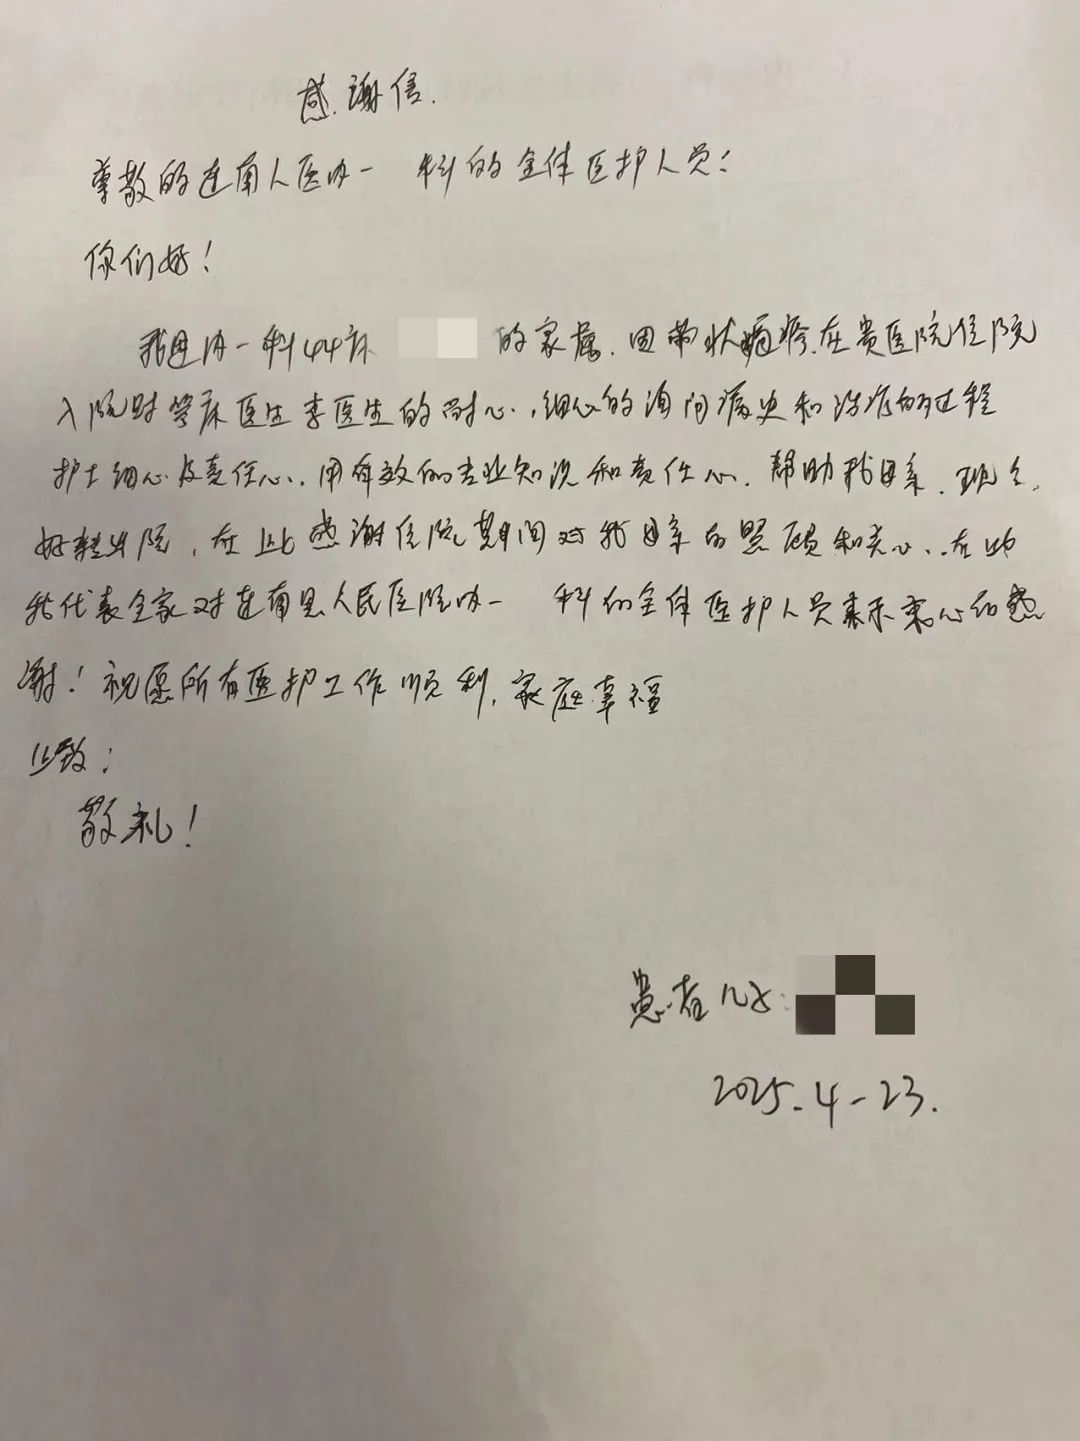 感谢信.
尊敬的连南人医内一 科的全体医护人员:
你们好!
我是内一科44床 的家属.因带状疱疹.在贵医院住院
入院时管床医生李医生的耐心.,细心的询问病史和治疗的过程
护士细心及责任心.用有效的专业知识和责任心.帮助我母亲.现已.
好转出院,在此感谢住院期间对我母亲的照顾和关心..在此
我代表全家对连南县人民医院内一 科的全体医护人员表示衷心的感
谢!祝愿所有医护工作顺利,家庭幸福
此致:
敬礼!
患者儿子:
2025.4-23.